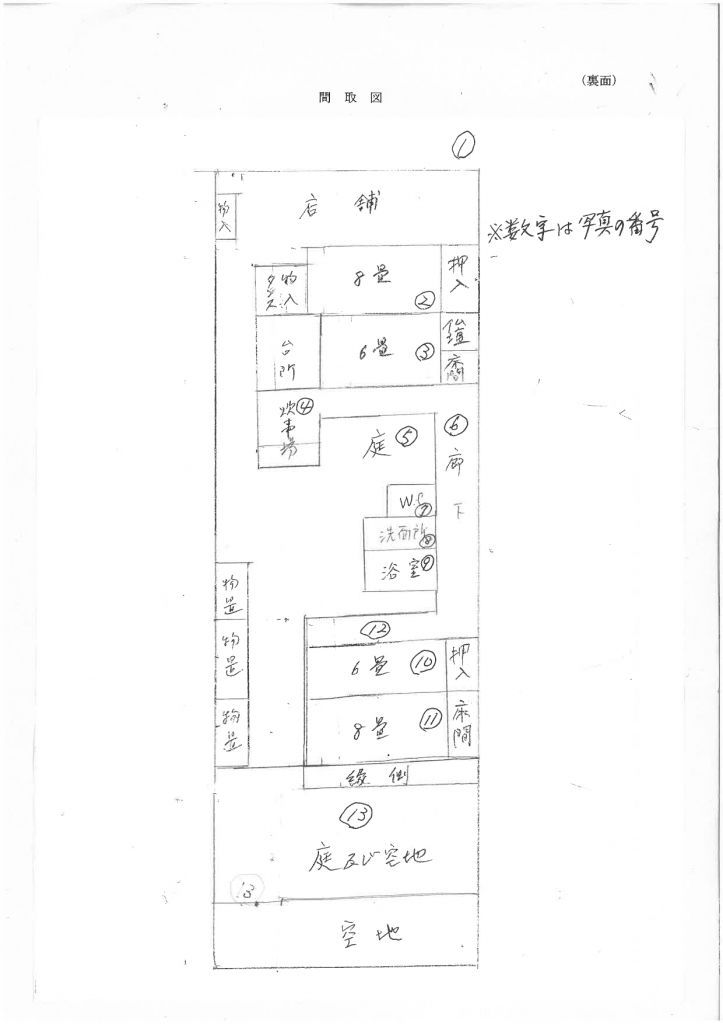 （裏面）
間取図
①
店舗
物入
※数字は写真の番号
8畳
②
押入
物入
タンス
6畳
③
仏壇
床間
台所
炊事場
④
庭
⑤
⑥
廊下
W.C
⑦
洗面所
⑧
浴室
⑨
物置
⑫
物置
6畳
⑩
押入
物置
8畳
⑪
床間
縁側
⑬
庭及び空地
13
空地